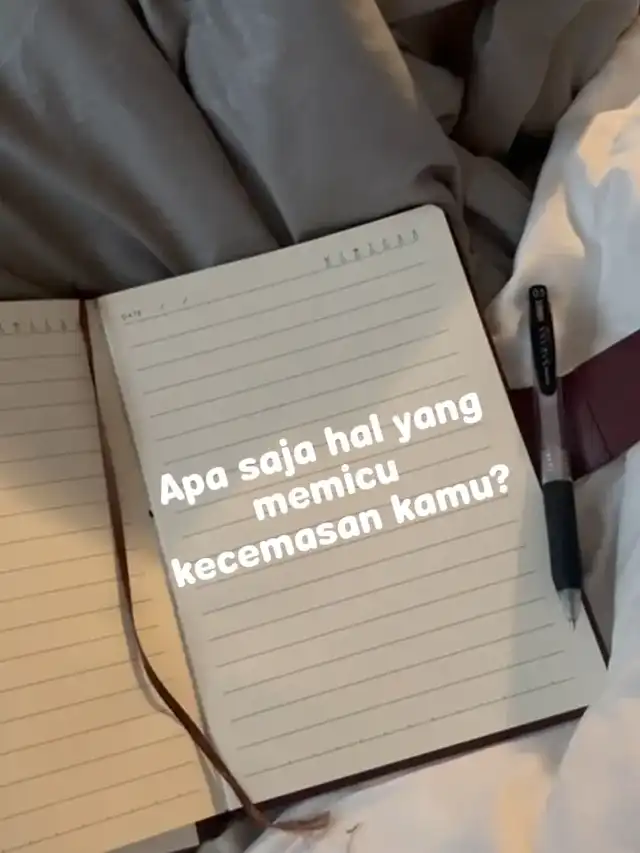 DATE / /
Apa saja hal yang
memicu
kecemasan kamu?
0.5